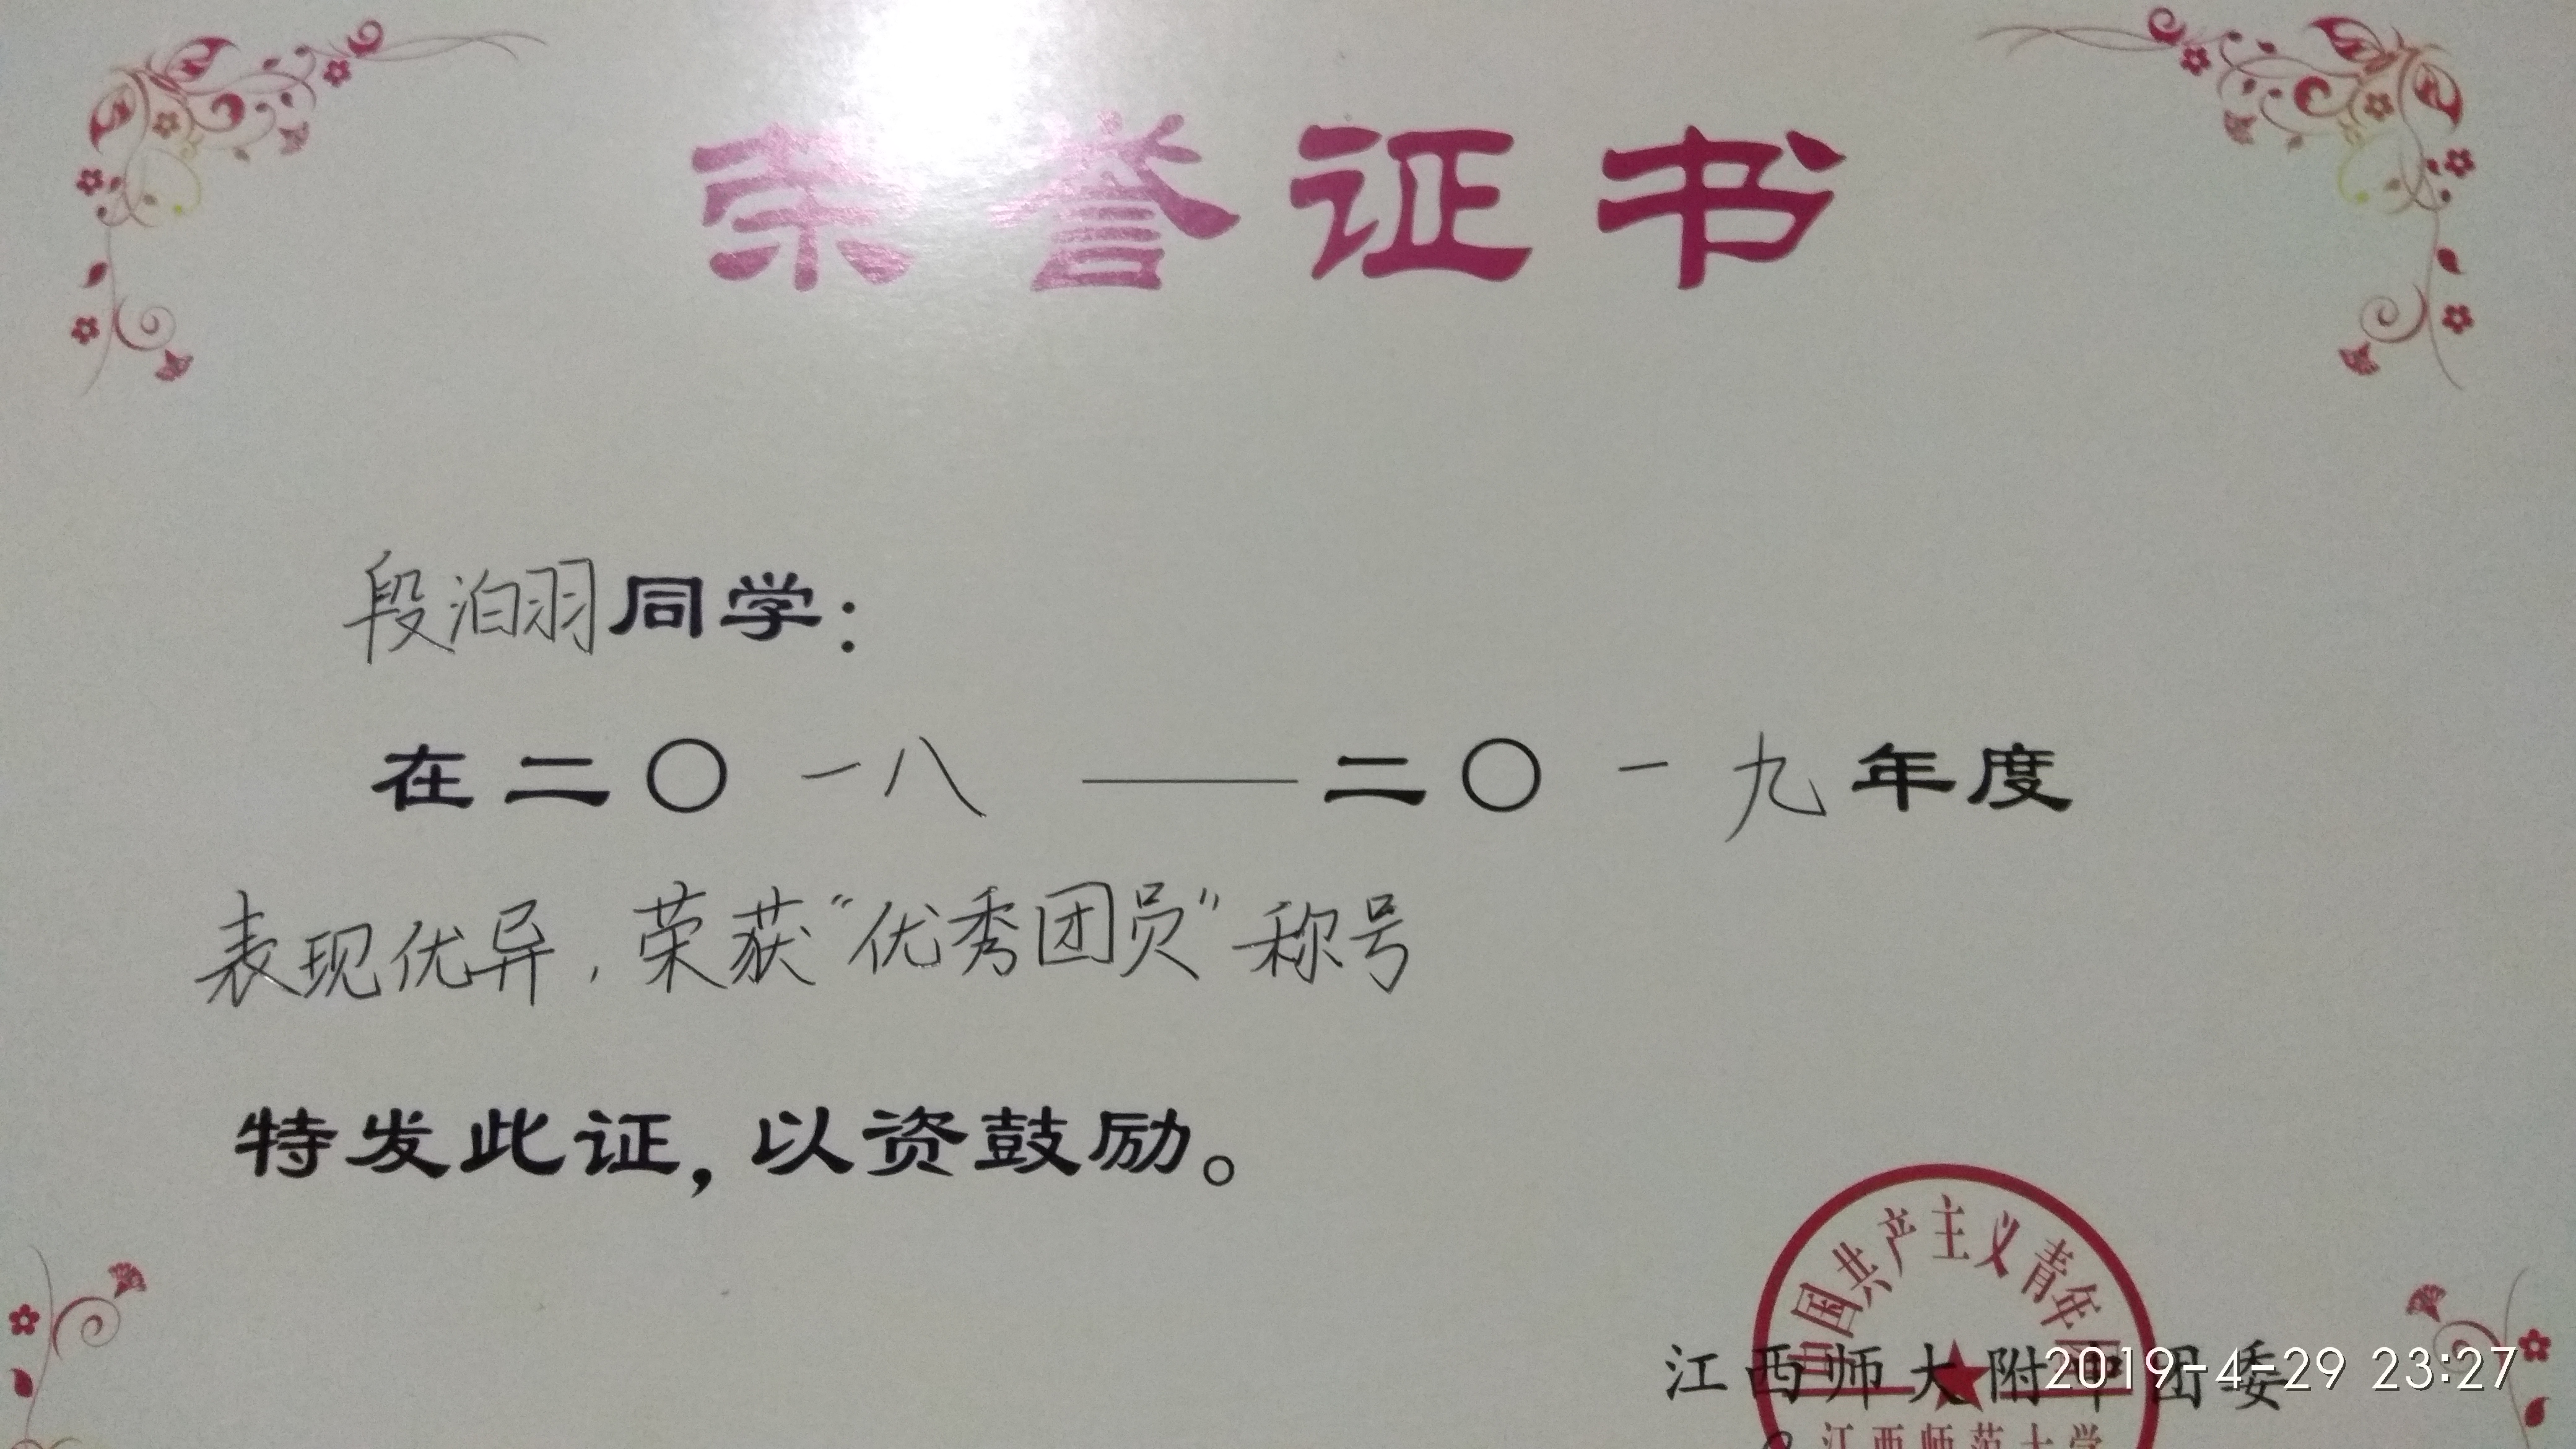 荣誉证书
段泊羽同学：
在二〇一八——二〇一九年度
表现优异，荣获“优秀团员”称号
特发此证，以资鼓励。
国共产主义青年团
江西师大附中团委
2019-4-29 23:27
江西师范大学